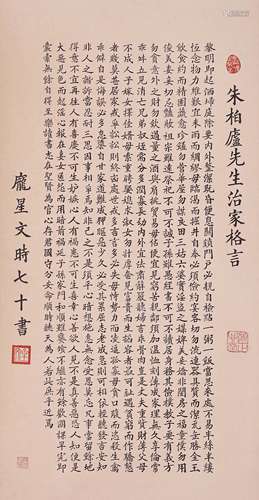 朱柏廬先生治家格言
黎明即起洒掃庭除要內外整潔既昏便息關鎖門戶必親自檢點一粥一飯當思來處不易半絲半縷
恆念物力維艱宜未雨而綢繆毋臨渴而掘井自奉必須儉約宴客切勿流連器具質而潔瓦缶勝金玉
飲食約而精園蔬愈珍饈勿營華屋勿謀良田三姑六婆實淫盜之媒婢美妾嬌非閨房之福童僕勿用
俊美妻妾切忌艷妝祖宗雖遠祭祀不可不誠子孫雖愚經書不可不讀居身務期儉樸教子要有義方
勿貪意外之財勿飲過量之酒與肩挑貿易毋佔便宜見窮苦親鄰須加溫恤刻薄成家理無久享倫常
乖舛立見消亡兄弟叔姪須分多潤寡長幼內外宜法肅辭嚴聽婦言乖骨肉豈是丈夫重貲財薄父母
不成人子嫁女擇佳婿毋索重聘娶媳求淑女勿計厚奩見富貴而生諂容者最可恥遇貧窮而作驕態
者賤莫甚居家戒爭訟訟則終凶處世戒多言言多必失勿恃勢力而凌逼孤寡毋貪口腹而恣殺生禽
乖僻自是悔誤必多頹惰自甘家道難成狎昵惡少久必受其累屈志老成急則可相依輕聽發言安知
非人之譖訴當忍耐三思因事相爭焉知非我之不是須平心暗想施惠無念受恩莫忘凡事當留餘地
得意不宜再往人有喜慶不可生妒嫉心人有禍患不可生喜幸心善欲人見不是真善惡恐人知便是
大惡見色而起淫心報在妻女匿怨而用暗箭禍延子孫家門和順雖饔飧不繼亦有餘歡國課早完即
囊橐無餘自得至樂讀書志在聖賢為官心存君國守分安命順時聽天為人若此庶乎近焉
龐星文時七十書